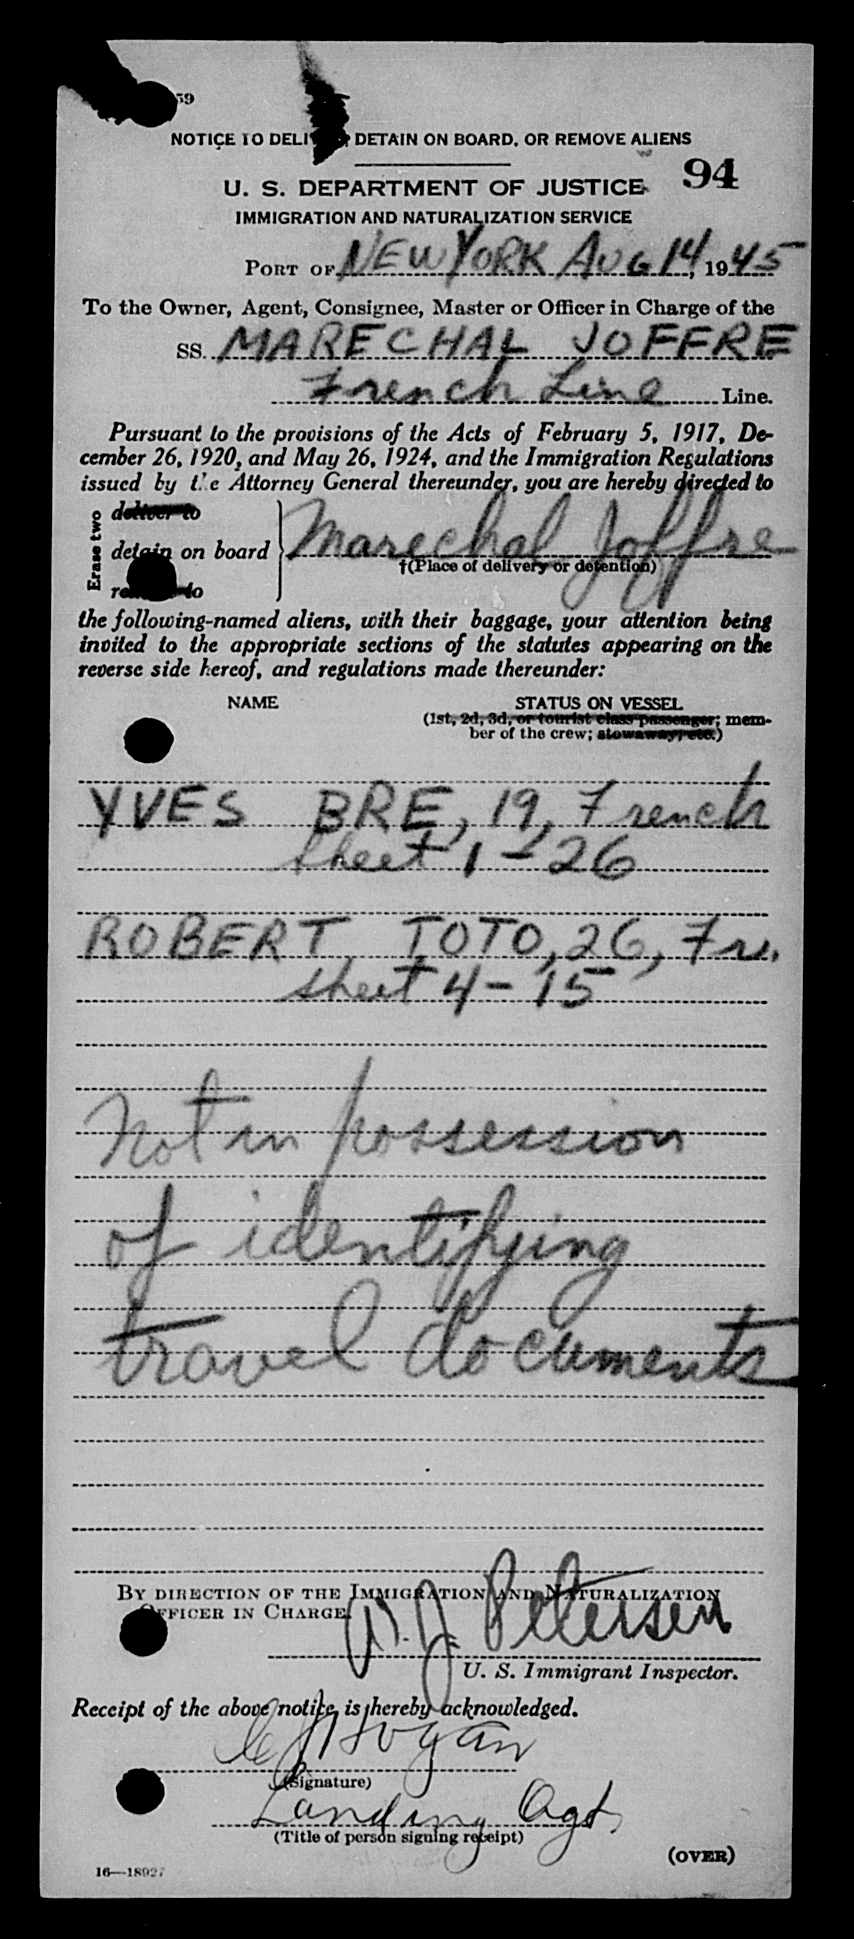 59
NOTICE TO DELIVER, DETAIN ON BOARD, OR REMOVE ALIENS
94
U. S. DEPARTMENT OF JUSTICE
IMMIGRATION AND NATURALIZATION SERVICE
PORT OF NEW YORK AUG 14, 1945
To the Owner, Agent, Consignee, Master or Officer in Charge of the
SS. MARECHAL JOFFRE
French Line Line.
Pursuant to the provisions of the Acts of February 5, 1917, De-
cember 26, 1920, and May 26, 1924, and the Immigration Regulations
issued by the Attorney General thereunder, you are hereby directed to
Erase two
deliver to
detain on board } Marechal Joffre
†(Place of delivery or detention)
remove to
the following-named aliens, with their baggage, your attention being
invited to the appropriate sections of the statutes appearing on the
reverse side hereof, and regulations made thereunder:
NAME STATUS ON VESSEL
(1st, 2d, 3d, or tourist class passenger; mem-
ber of the crew; stowaway, etc.)
YVES BRE, 19, French
sheet 1-26
ROBERT TOTO, 26, Fr.
sheet 4-15
Not in possession
of identifying
travel documents
BY DIRECTION OF THE IMMIGRATION AND NATURALIZATION
OFFICER IN CHARGE.
J. Petersen
U. S. Immigrant Inspector.
Receipt of the above notice is hereby acknowledged.
Hogan
(Signature)
Landing Agt.
(Title of person signing receipt)
(OVER)
16—18927